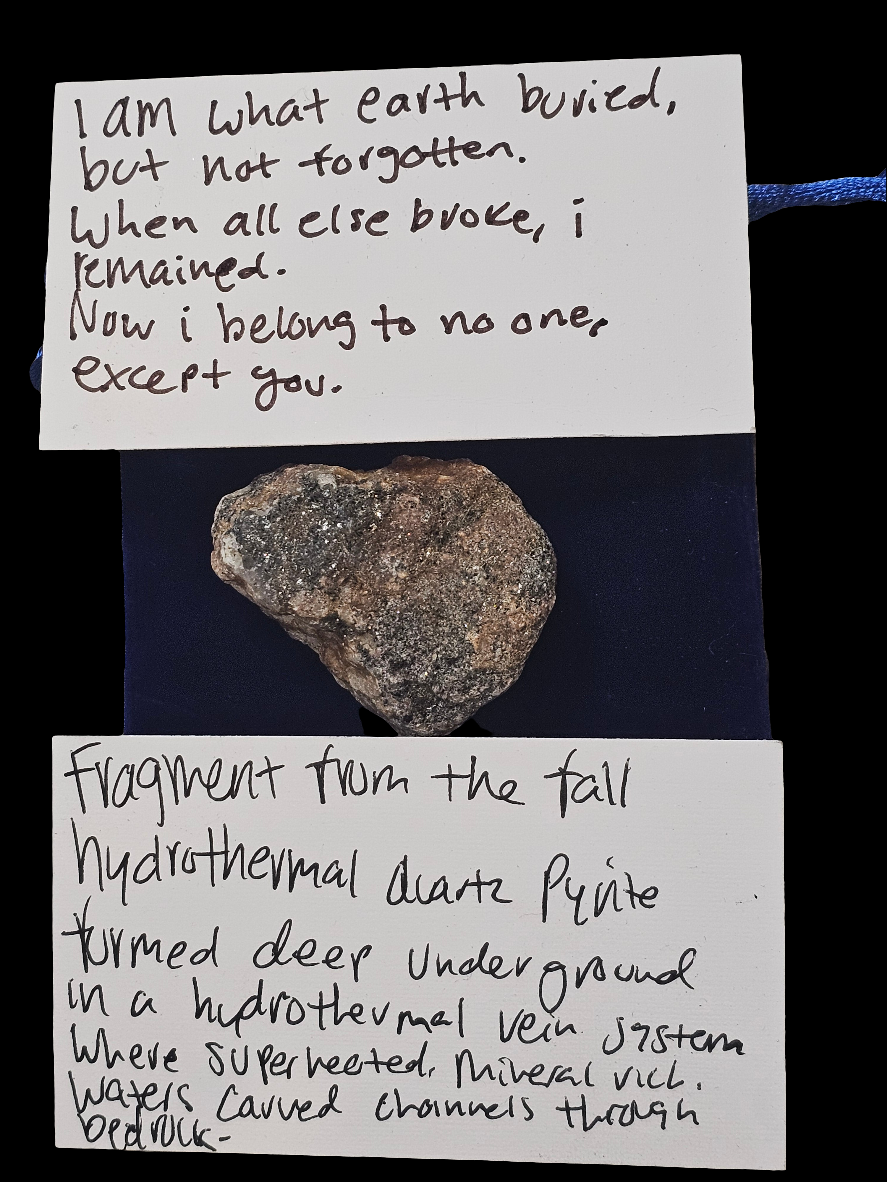 I am what earth buried,
but not forgotten.
When all else broke, i
remained.
Now i belong to no one,
except you.
Fragment from the fall
hydrothermal Quartz Pyrite
formed deep underground
in a hydrothermal vein system
where superheated, mineral rich.
waters carved channels through
bedrock-